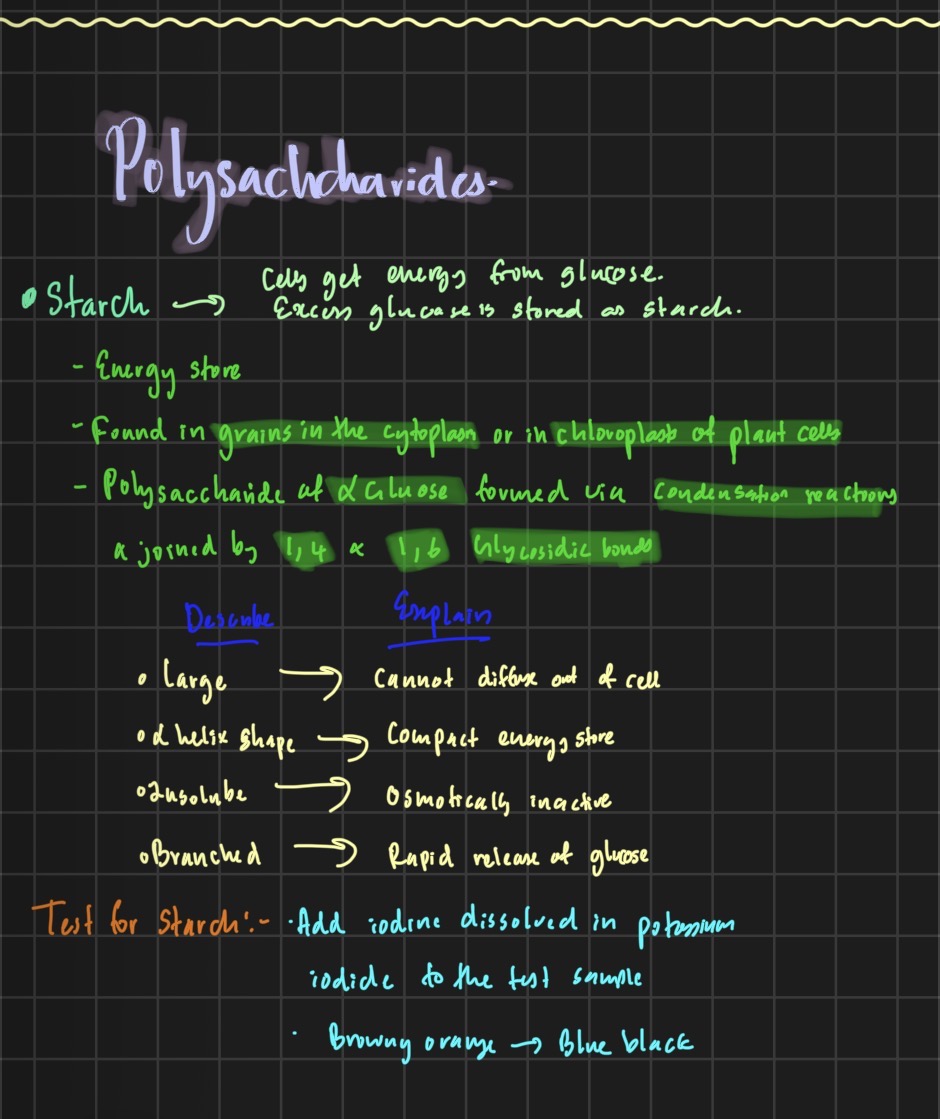 Polysachcharides.
• Starch → Cells get energy from glucose.
Excess glucose is stored as starch.
- Energy store
- Found in grains in the cytoplasm or in chloroplasts of plant cells
- Polysaccharide of α Glucose formed via Condensation reactions
& joined by 1,4 & 1,6 Glycosidic bonds
Describe Explain
• Large → Cannot diffuse out of cell
• α helix shape → Compact energy store
• Insolube → Osmotically inactive
• Branched → Rapid release of glucose
Test for Starch:- · Add iodine dissolved in potassium
iodide to the test sample
· Browny orange → Blue black